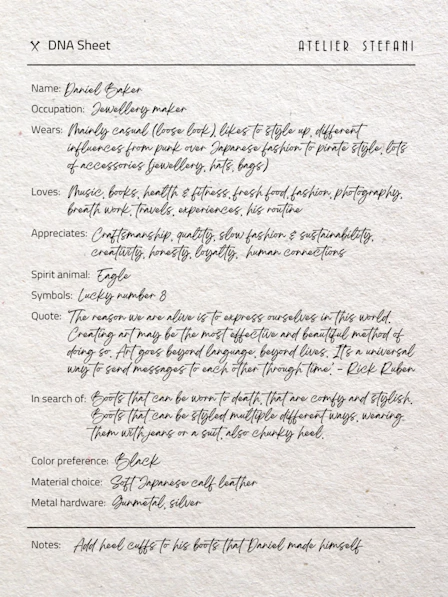 DNA Sheet ATELIER STEFANI
Name: Daniel Baker
Occupation: Jewellery maker
Wears: Mainly casual (loose look), likes to style up, different
influences from punk over Japanese fashion to pirate style, lots
of accessories (jewellery, hats, bags)
Loves: Music, books, health & fitness, fresh food, fashion, photography,
breath work, travels, experiences, his routine
Appreciates: Craftsmanship, quality, slow fashion & sustainability,
creativity, honesty, loyalty, human connections
Spirit animal: Eagle
Symbols: Lucky number 8
Quote: 'The reason we are alive is to express ourselves in this world.
Creating art may be the most effective and beautiful method of
doing so. Art goes beyond language, beyond lives. It's a universal
way to send messages to each other through time'. - Rick Ruben
In search of: Boots that can be worn to death, that are comfy and stylish.
Boots that can be styled multiple different ways, wearing
them with jeans or a suit, also chunky heel.
Color preference: Black
Material choice: Soft Japanese calf leather
Metal hardware: Gunmetal, silver
Notes: Add heel cuffs to his boots that Daniel made himself